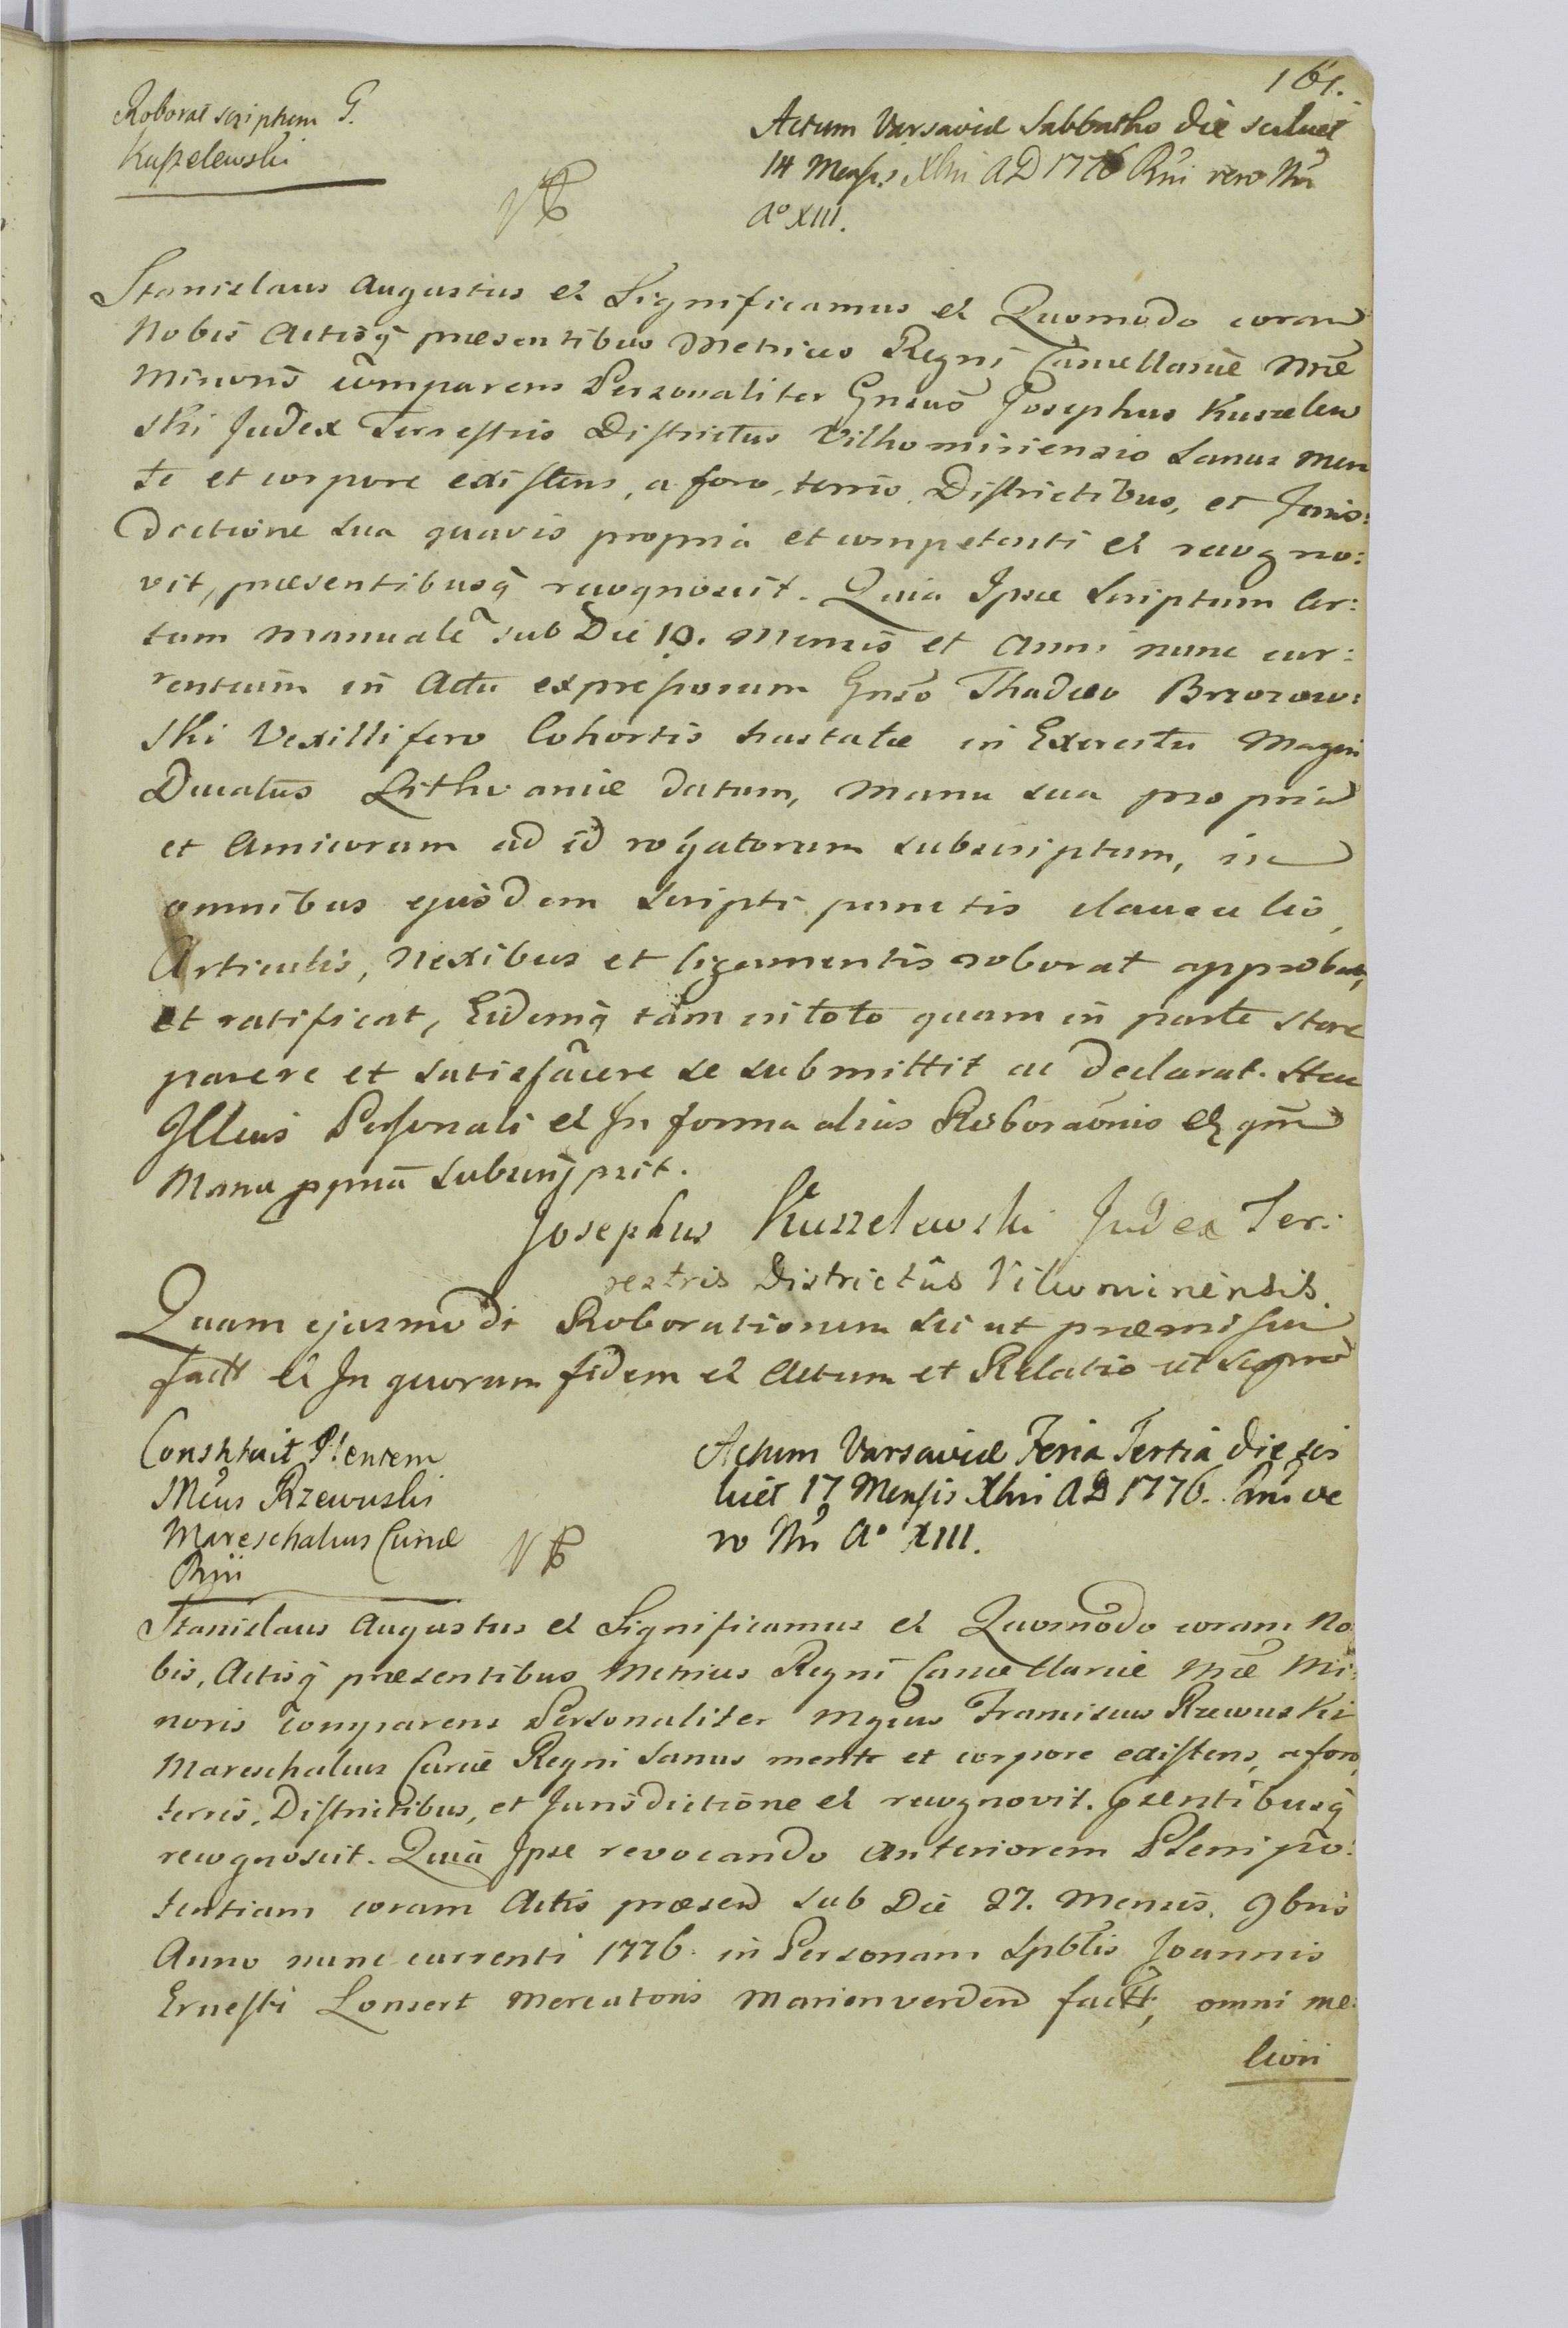 161.
Roborat scriptum G.
Kuszelewski
Actum Varsaviæ Sabbatho die scilicet
14 Mensis Xbri AD 1776 Rni vero Nri
A° XIII.
Stanislaus Augustus et Significamus et Quomodo coram
Nobis Actisq præsentibus Metrices Regni Cancellariæ Nræ
Minoris comparens Personaliter Gnsus Josephus Kuszelew
ski Judex Terrestris Districtus Vilkomiriensis Sanus Men
te et corpore existens, a foro, terris, Districtibus, et Juris:
dictione sua quavis propria et competenti et recogno:
vit, præsentibusq recognoscit. Quia Ipse Scriptum Cer:
tum manuale sub Die 10. Mensis et Anni nunc cur:
rentium in Actu expressorum Gnso Thadæo Brzozow:
ski Vexillifero Cohortis hastatæ in Exercitu Magni
Ducatus Lithvaniæ datum, Manu sua propria
et Amicorum ad id rogatorum subscriptum, in
omnibus ejusdem scripti punctis clausulis,
Articulis, Nexibus et ligamentis roborat approbat,
et ratificat, Eidemq tam in toto quam in parte stare
parere et satisfacere se submittit ac declarat. Stan
Illius Personali et In forma alias Roboraonis et qm
Manu ppria subscripsit.
Josephus Kuszelewski Judex Ter:
restris Districtûs Vilkominensis
Quam ejusmodi Roborationem sic ut præmissum
factt et In quorum fidem et Actum et Relatio ut supra
Constituit Plentem
Mcus Rzewuski
Mareschalcus Curiæ
Rni
Actum Varsaviæ Feria Tertia die sci
licet 17 Mensis Xbri AD 1776. Rni ve
ro Nri A° XIII.
Stanislaus Augustus et Significamus et Quomodo coram No
bis, Actisq præsentibus Metrices Regni Cancellariæ Nræ Mi:
noris comparens Personaliter Mgcus Franciscus Rzewuski
Mareschalcus Curiæ Regni Sanus mente et corpore existens, a foro,
terris, Districtibus, et Jurisdictione et recognovit. Psentibusq
recognoscit. Quia Ipse revocando Anteriorem Plenipo:
tentiam coram Actis præsen sub Die 27. Mensis. 9bris
Anno nunc currenti 1776. in Personam Spblis Joannis
Ernesti Lonsert Mercatoris Marienverden factt, omni me:
liori